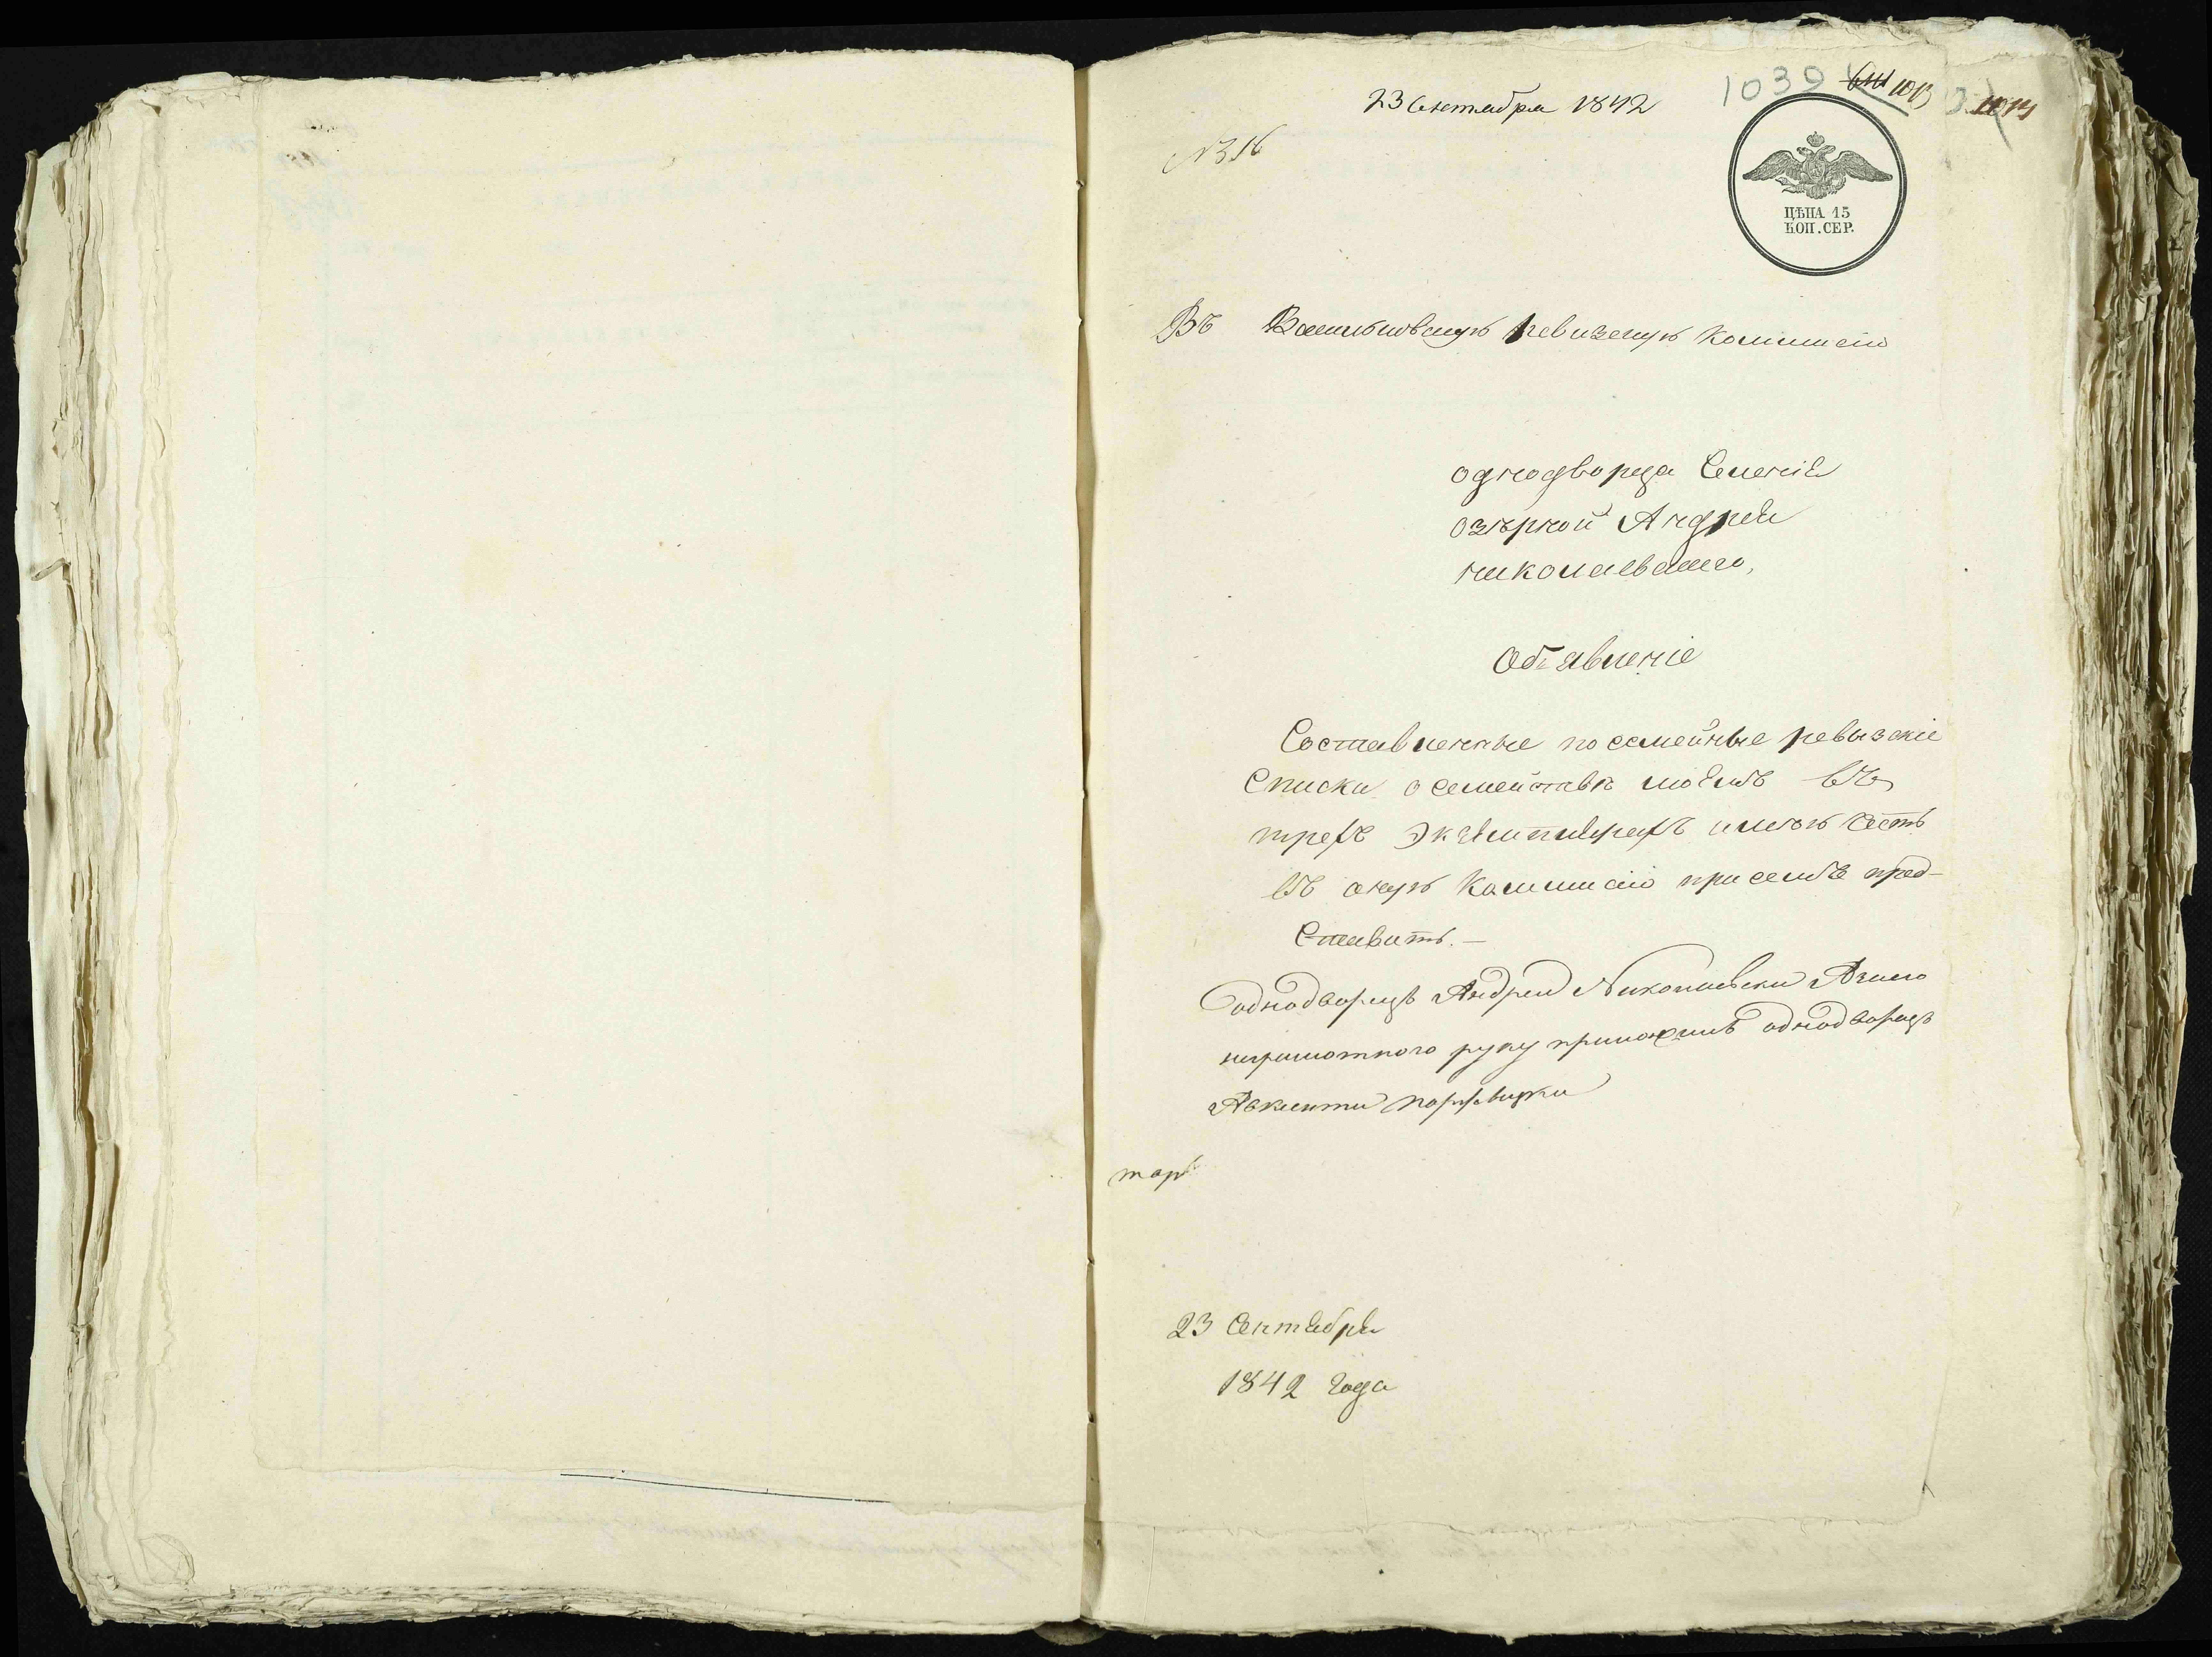 23 Сентября 1842
1030
1013
1013
№316
ЦѢНА 15
КОП. СЕР.
Въ Васильковскую Ревизскую Коммисію
однодворца Селенія
озѣрной Андрея
николаевского,
Обявленіе
Составленные посемейные ревызскіе
Списки о семействѣ моемъ въ
трехъ Экземплярахъ имѣю честь
въ оную Коммисію при семъ пред-
ставить.—
однодворецъ Андрей Николаевски А занего
неграмотного руку приложилъ однодворецъ
23 Сентября
1842 года